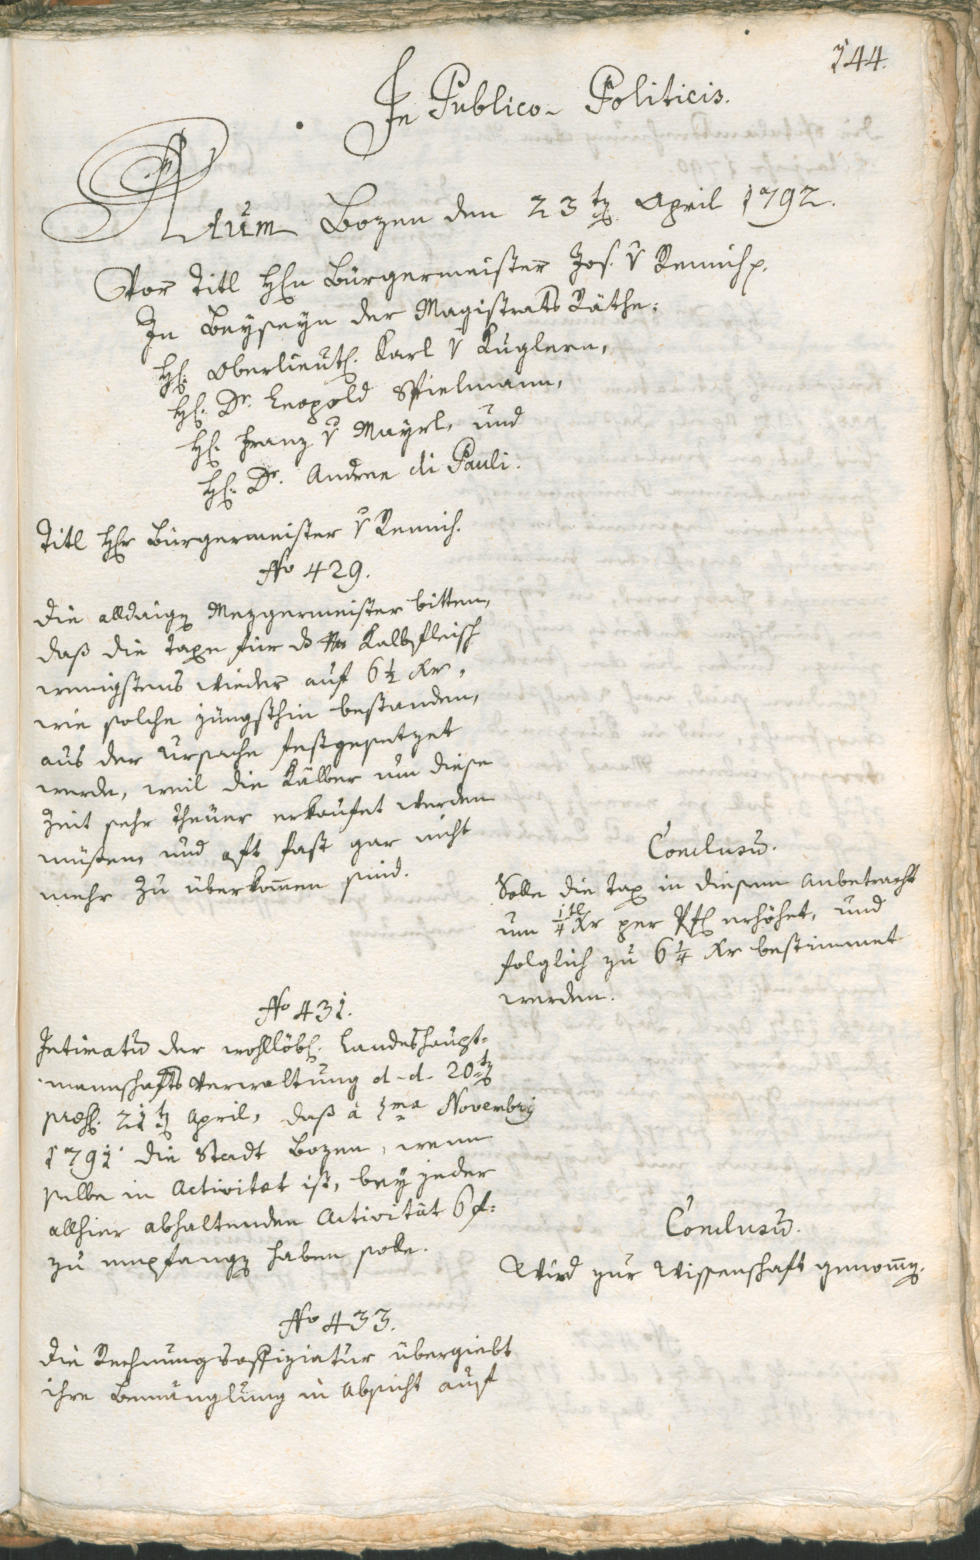 144.
In Publico-Politicis.
Actum Bozen den 23tn April 1792.
Vor Titl Hrn Bürgermeister Jos. v Remich p.
In Beyseyn der Magistrats Räthe:
H. Oberlieut. Karl v Kuglern,
H. Dr. Leopold Spielmann,
H. Franz v Mayrl, und
H. Dr. Andree di Pauli.
Titl Hr Bürgermeister v Remich.
No 429.
Die alldaign Mezgermeister bitten,
daß die Taxe für das Kalbfleisch
wenigstens wieder auf 6½ Kr,
wie solche jüngsthin bestanden,
aus der Ursache festgesetzet
werde, weil die Kälber um diese
Zeit sehr theuer erkaufet werden
müßen, und oft fast gar nicht
mehr zu überkom̄en sind.
Conclusum.
Solle die Tax in diesem Anbetracht
um ¼tl Kr per Pf erhöhet, und
folglich zu 6¼ Kr bestimmet
werden.
No 431.
Intimatum der wohllöbl. Landeshaupt-
mannschafts Verwaltung d-d- 20tn
præs. 21tn April, daß à 1ma Novembris
1791 die Stadt Bozen, wenn
selbe in Activitat ist, bey jeder
allhier abhaltenden Activität 6 f:
zu empfangen haben solle.
Conclusum.
Wird zur Wissenschaft genom̄en.
No 433.
Die Rechnungsoffiziatur übergiebt
ihre Bemänglung in Absicht auf